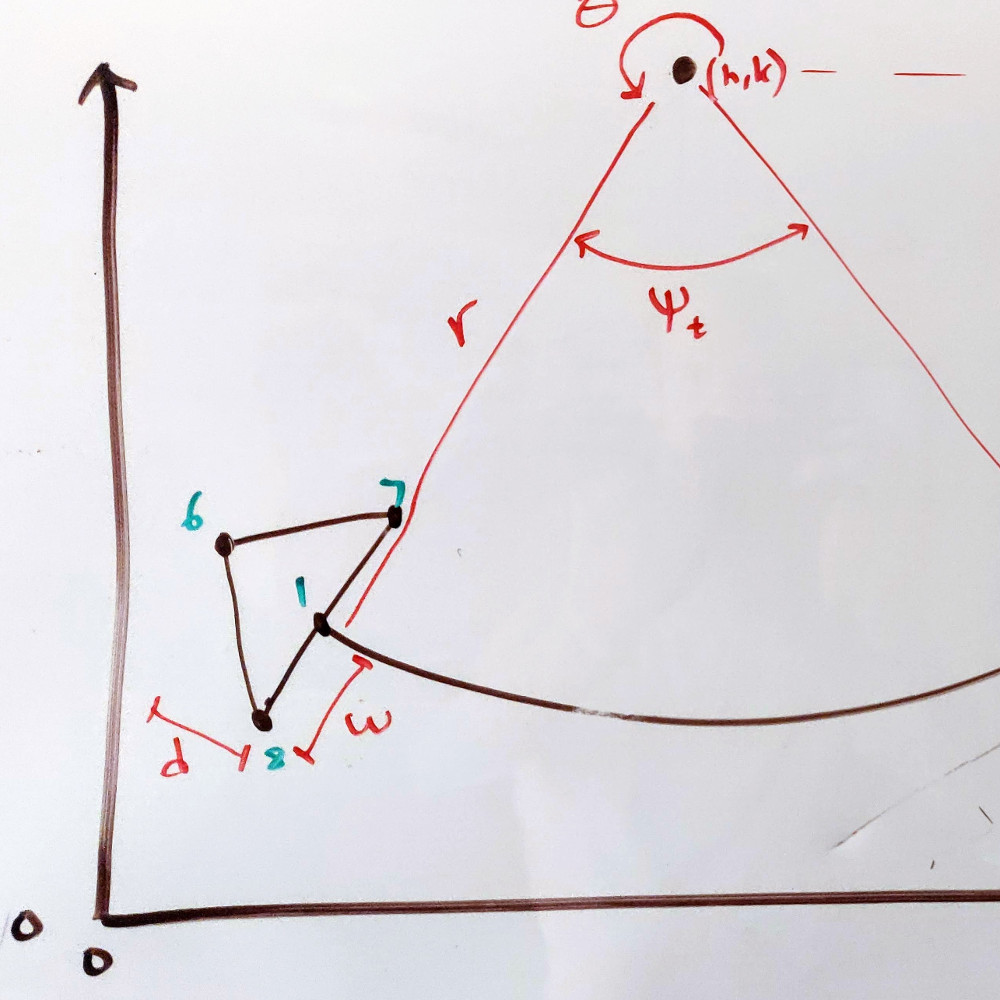 θ
(h,k)
ψt
r
7
6
1
w
d
8
0
0